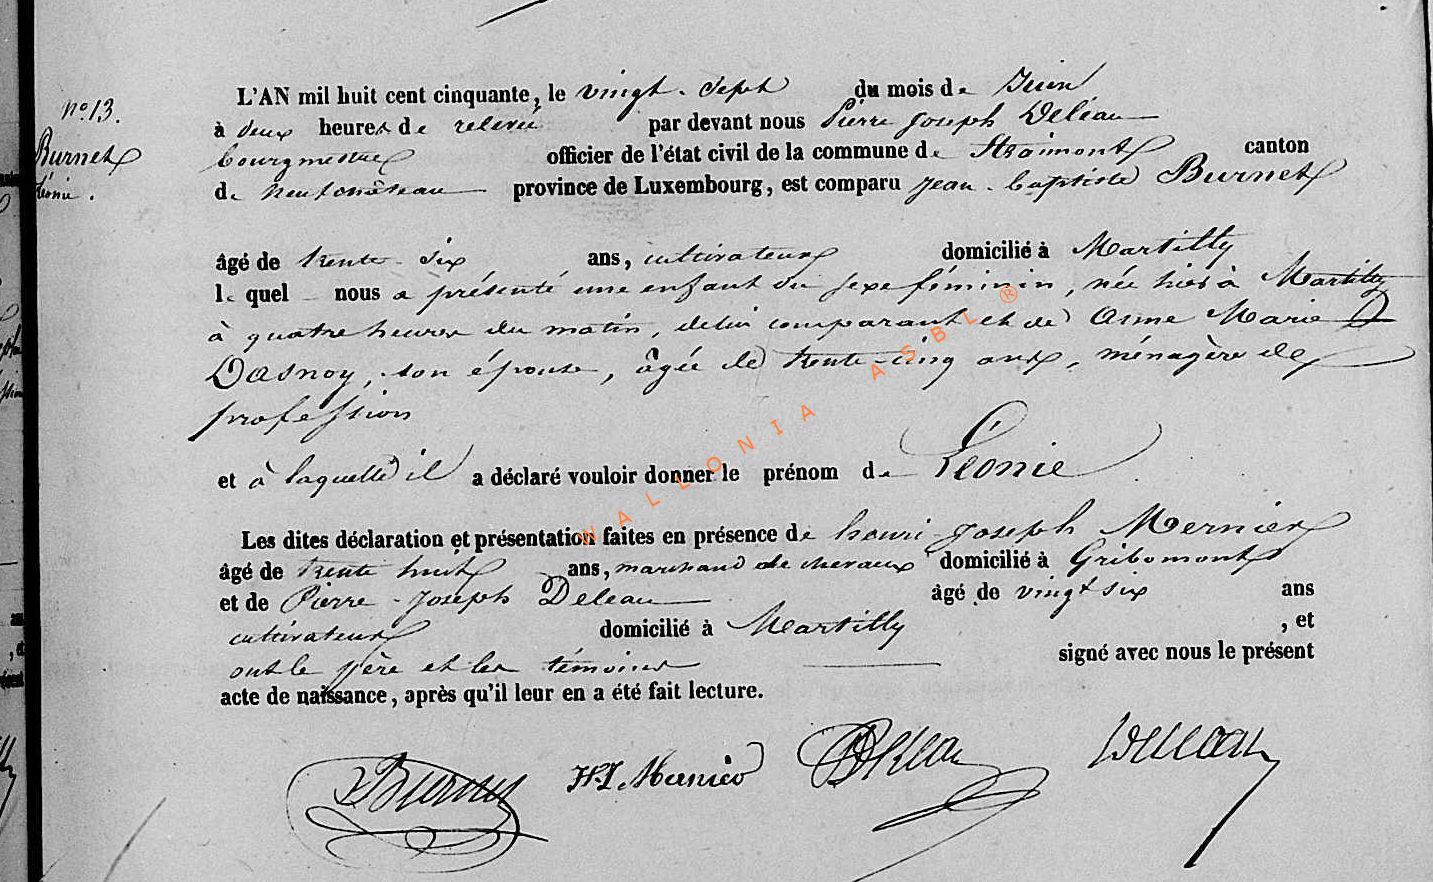 N° 13.
Burnet
Léonie.
L'AN mil huit cent cinquante, le vingt-sept du mois de Juin
à deux heures de relevée par devant nous Pierre Joseph Deleau
bourgmestre officier de l'état civil de la commune de Straimont canton
de neufchâteau province de Luxembourg, est comparu Jean-baptiste Burnet
âgé de trente-six ans, cultivateur domicilié à Martilly
lequel nous a présenté une enfant du sexe féminin, née hier à Martilly
à quatre heures du matin, de lui comparant et de Anne Marie
Dasnoy, son épouse, âgée de trente-cinq ans, ménagère de
profession
et à laquelle il a déclaré vouloir donner le prénom de Léonie
Les dites déclaration et présentation faites en présence de henri-Joseph Mernier
âgé de trente huit ans, marchand de chevaux domicilié à Gribomont
et de Pierre-Joseph Deleau âgé de vingt six ans
cultivateur domicilié à Martilly, et
ont le père et les témoins signé avec nous le présent
acte de naissance, après qu'il leur en a été fait lecture.
Burnet H.J. Mernier Deleau Deleau
WALLONIA ASBL ®